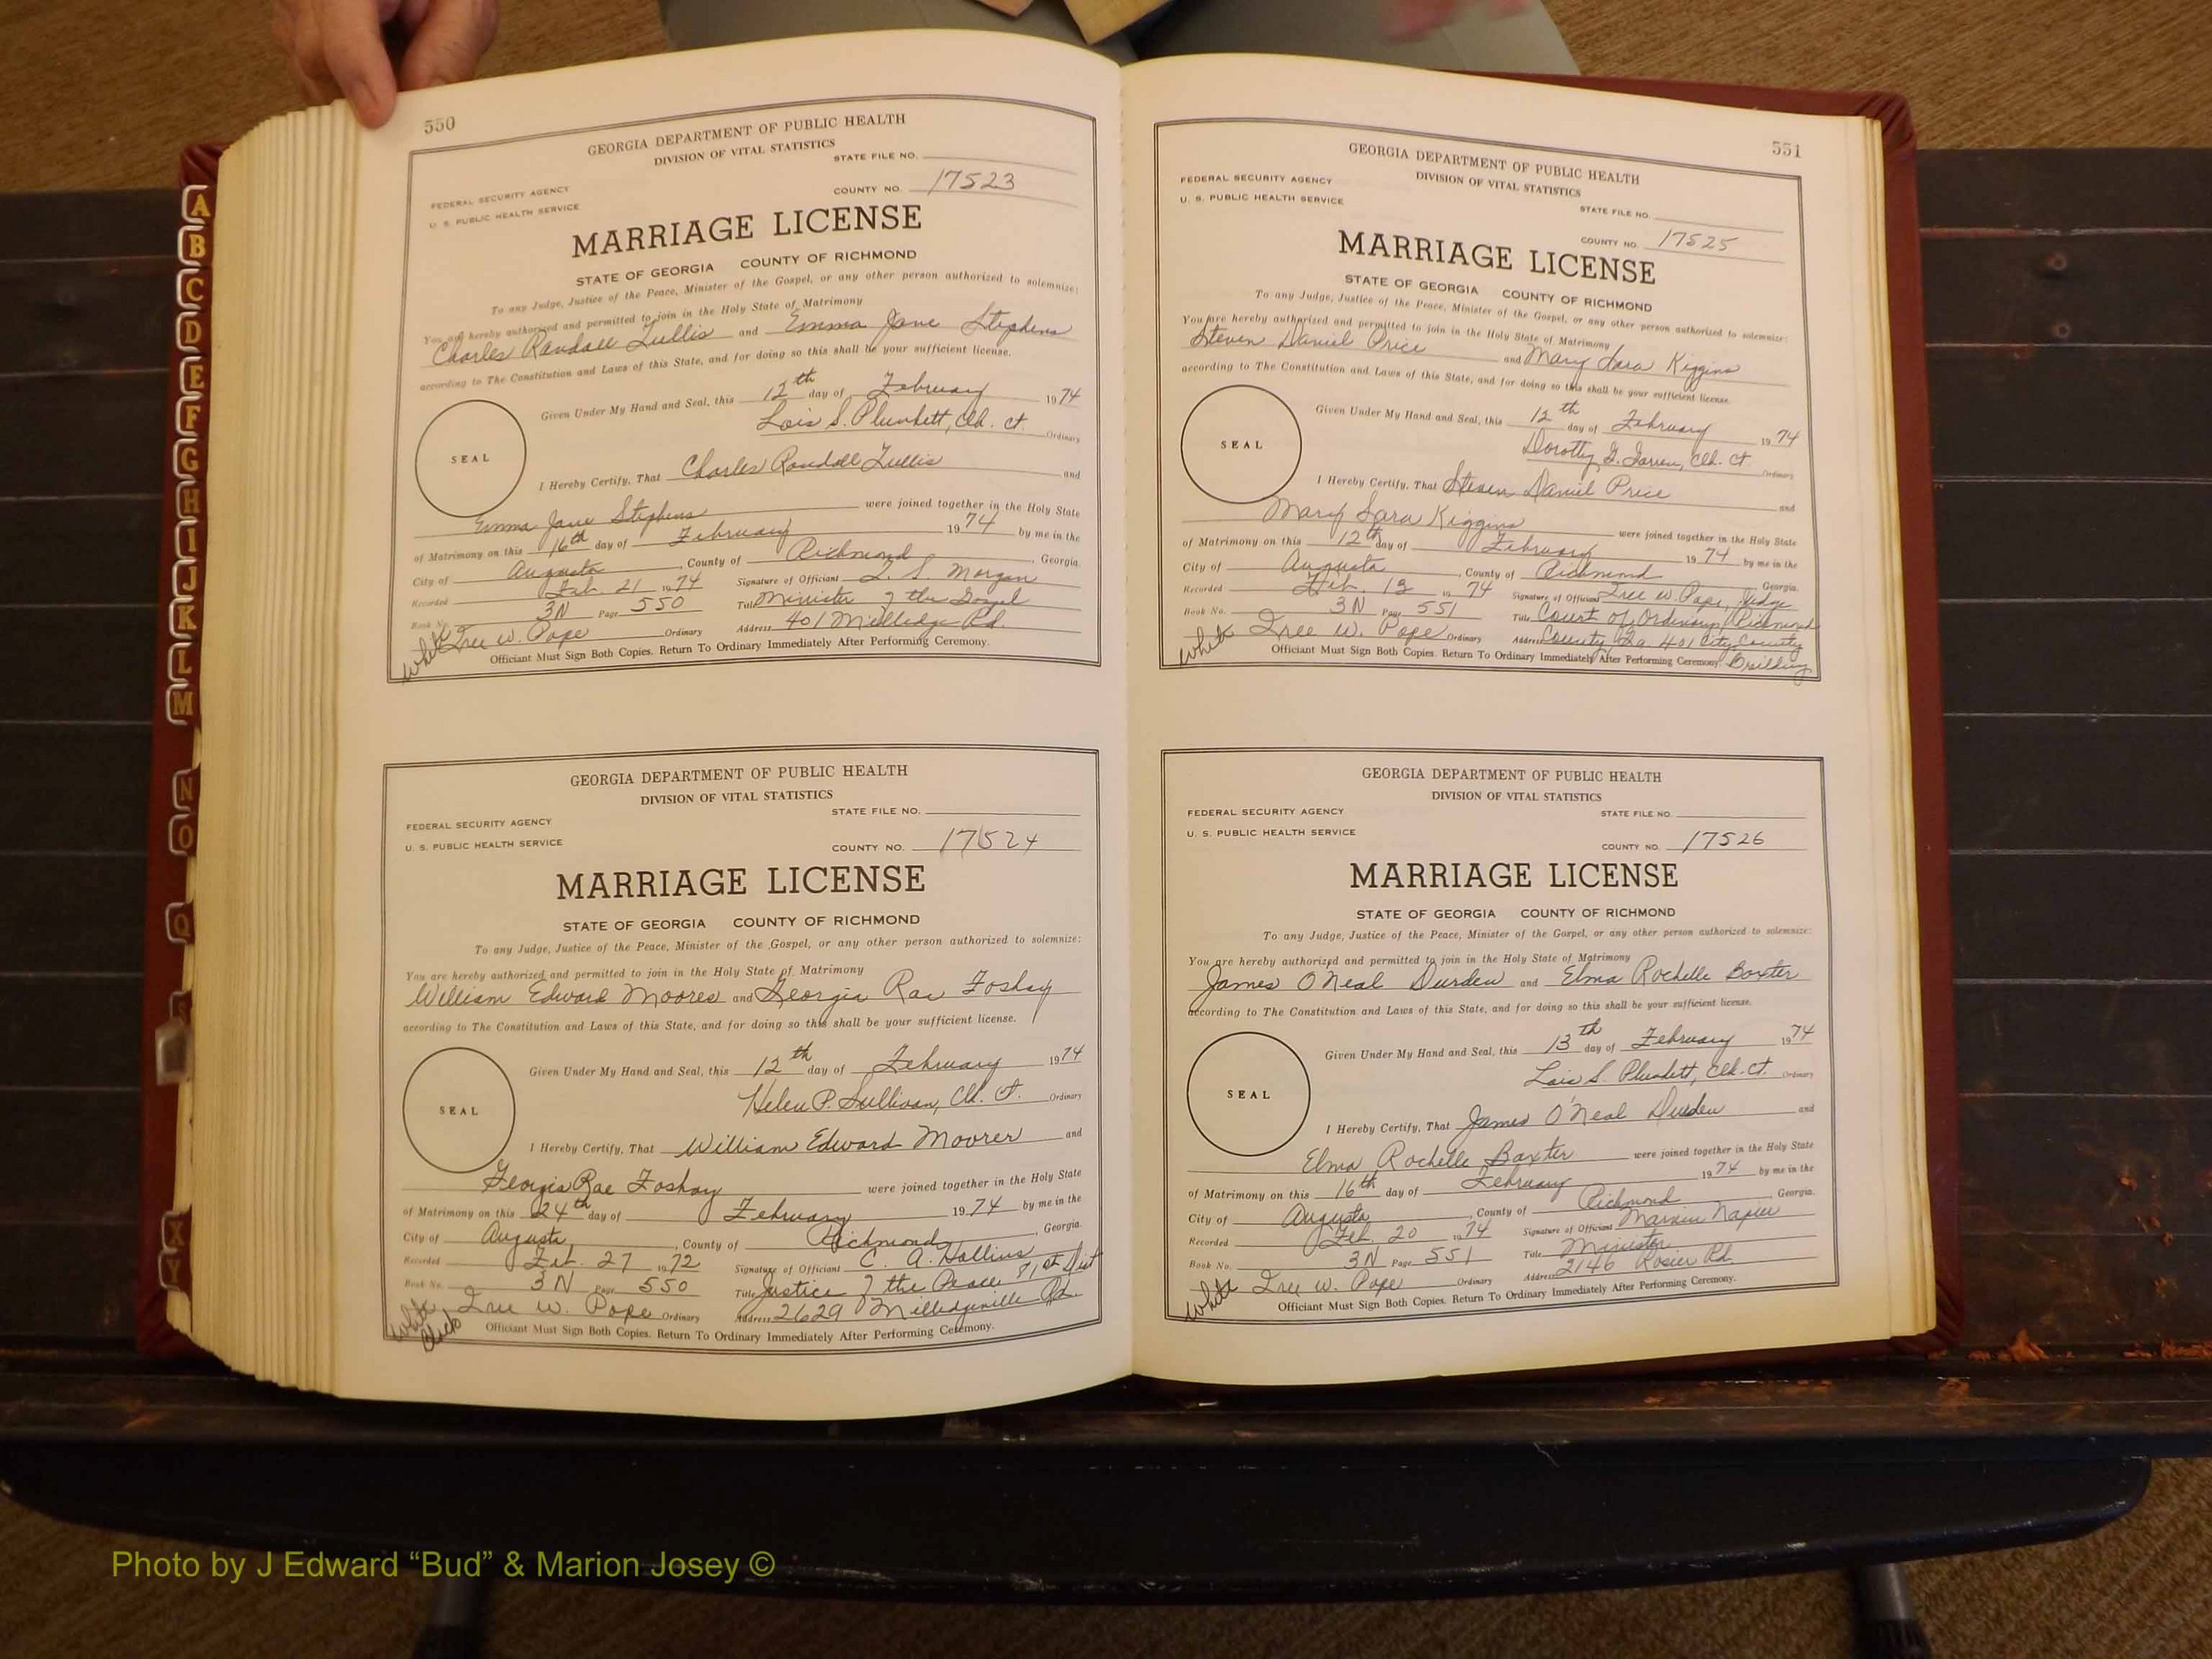 550
GEORGIA DEPARTMENT OF PUBLIC HEALTH
DIVISION OF VITAL STATISTICS
STATE FILE NO.
FEDERAL SECURITY AGENCY
U. S. PUBLIC HEALTH SERVICE
COUNTY NO. 17523
MARRIAGE LICENSE
STATE OF GEORGIA COUNTY OF RICHMOND
To any Judge, Justice of the Peace, Minister of the Gospel, or any other person authorized to solemnize:
You are hereby authorized and permitted to join in the Holy State of Matrimony
Charles Randall Tullis and Emma Jane Stephens
according to The Constitution and Laws of this State, and for doing so this shall be your sufficient license.
Given Under My Hand and Seal, this 12th day of February 1974
Lois S. Plunkett, Clk. Ct. Ordinary
SEAL
I Hereby Certify, That Charles Randall Tullis and
Emma Jane Stephens were joined together in the Holy State
of Matrimony on this 16th day of February 1974 by me in the
City of Augusta, County of Richmond, Georgia.
Recorded Feb. 21 1974 Signature of Officiant L. S. Morgan
Book No. 3N Page 550 Title Minister of the Gospel
White Ordinary Address 401 Milledge Rd.
Officiant Must Sign Both Copies. Return To Ordinary Immediately After Performing Ceremony.
GEORGIA DEPARTMENT OF PUBLIC HEALTH
DIVISION OF VITAL STATISTICS
STATE FILE NO.
FEDERAL SECURITY AGENCY
U. S. PUBLIC HEALTH SERVICE
COUNTY NO. 17524
MARRIAGE LICENSE
STATE OF GEORGIA COUNTY OF RICHMOND
To any Judge, Justice of the Peace, Minister of the Gospel, or any other person authorized to solemnize:
You are hereby authorized and permitted to join in the Holy State of Matrimony
William Edward Moorer and Georgia Rae Foshay
according to The Constitution and Laws of this State, and for doing so this shall be your sufficient license.
Given Under My Hand and Seal, this 12th day of February 1974
Helen P. Sullivan, Clk. Ct. Ordinary
SEAL
I Hereby Certify, That William Edward Moorer and
Georgia Rae Foshay were joined together in the Holy State
of Matrimony on this 24th day of February 1974 by me in the
City of Augusta, County of Richmond, Georgia.
Recorded Feb. 27 1972 Signature of Officiant C. A. Hollins
Book No. 3N Page 550 Title Justice of the Peace 81st Dist
White W. Pope Ordinary Address 2629 Milledgeville Rd.
Officiant Must Sign Both Copies. Return To Ordinary Immediately After Performing Ceremony.
551
GEORGIA DEPARTMENT OF PUBLIC HEALTH
DIVISION OF VITAL STATISTICS
FEDERAL SECURITY AGENCY
U. S. PUBLIC HEALTH SERVICE
STATE FILE NO.
COUNTY NO. 17525
MARRIAGE LICENSE
STATE OF GEORGIA COUNTY OF RICHMOND
To any Judge, Justice of the Peace, Minister of the Gospel, or any other person authorized to solemnize:
You are hereby authorized and permitted to join in the Holy State of Matrimony
Steven Daniel Price and Mary Sara Kiggins
according to The Constitution and Laws of this State, and for doing so this shall be your sufficient license.
Given Under My Hand and Seal, this 12th day of February 1974
Dorothy Clk. Ct. Ordinary
SEAL
I Hereby Certify, That Steven Daniel Price and
Mary Sara Kiggins were joined together in the Holy State
of Matrimony on this 12th day of February 1974 by me in the
City of Augusta, County of Richmond, Georgia.
Recorded Feb. 13 1974 Signature of Officiant W. Pope, Judge
Book No. 3N Page 551 Title Court of Ordinary, Richmond
White W. Pope Ordinary Address County, Ga 401 City-County
Officiant Must Sign Both Copies. Return To Ordinary Immediately After Performing Ceremony. Building
GEORGIA DEPARTMENT OF PUBLIC HEALTH
DIVISION OF VITAL STATISTICS
FEDERAL SECURITY AGENCY
STATE FILE NO.
U. S. PUBLIC HEALTH SERVICE
COUNTY NO. 17526
MARRIAGE LICENSE
STATE OF GEORGIA COUNTY OF RICHMOND
To any Judge, Justice of the Peace, Minister of the Gospel, or any other person authorized to solemnize:
You are hereby authorized and permitted to join in the Holy State of Matrimony
James O'Neal Durden and Elma Rochelle Baxter
according to The Constitution and Laws of this State, and for doing so this shall be your sufficient license.
Given Under My Hand and Seal, this 13th day of February 1974
Lois S. Plunkett, Clk. Ct. Ordinary
SEAL
I Hereby Certify, That James O'Neal Durden and
Elma Rochelle Baxter were joined together in the Holy State
of Matrimony on this 16th day of February 1974 by me in the
City of Augusta, County of Richmond, Georgia.
Recorded Feb. 20 1974 Signature of Officiant Marvin Napier
Book No. 3N Page 551 Title Minister
White W. Pope Ordinary Address 2146 Rosier Rd.
Officiant Must Sign Both Copies. Return To Ordinary Immediately After Performing Ceremony.
A
B
C
D
E
F
G
H
I
J
K
L
M
N
O
Q
S
X
Y
Photo by J Edward “Bud” & Marion Josey ©